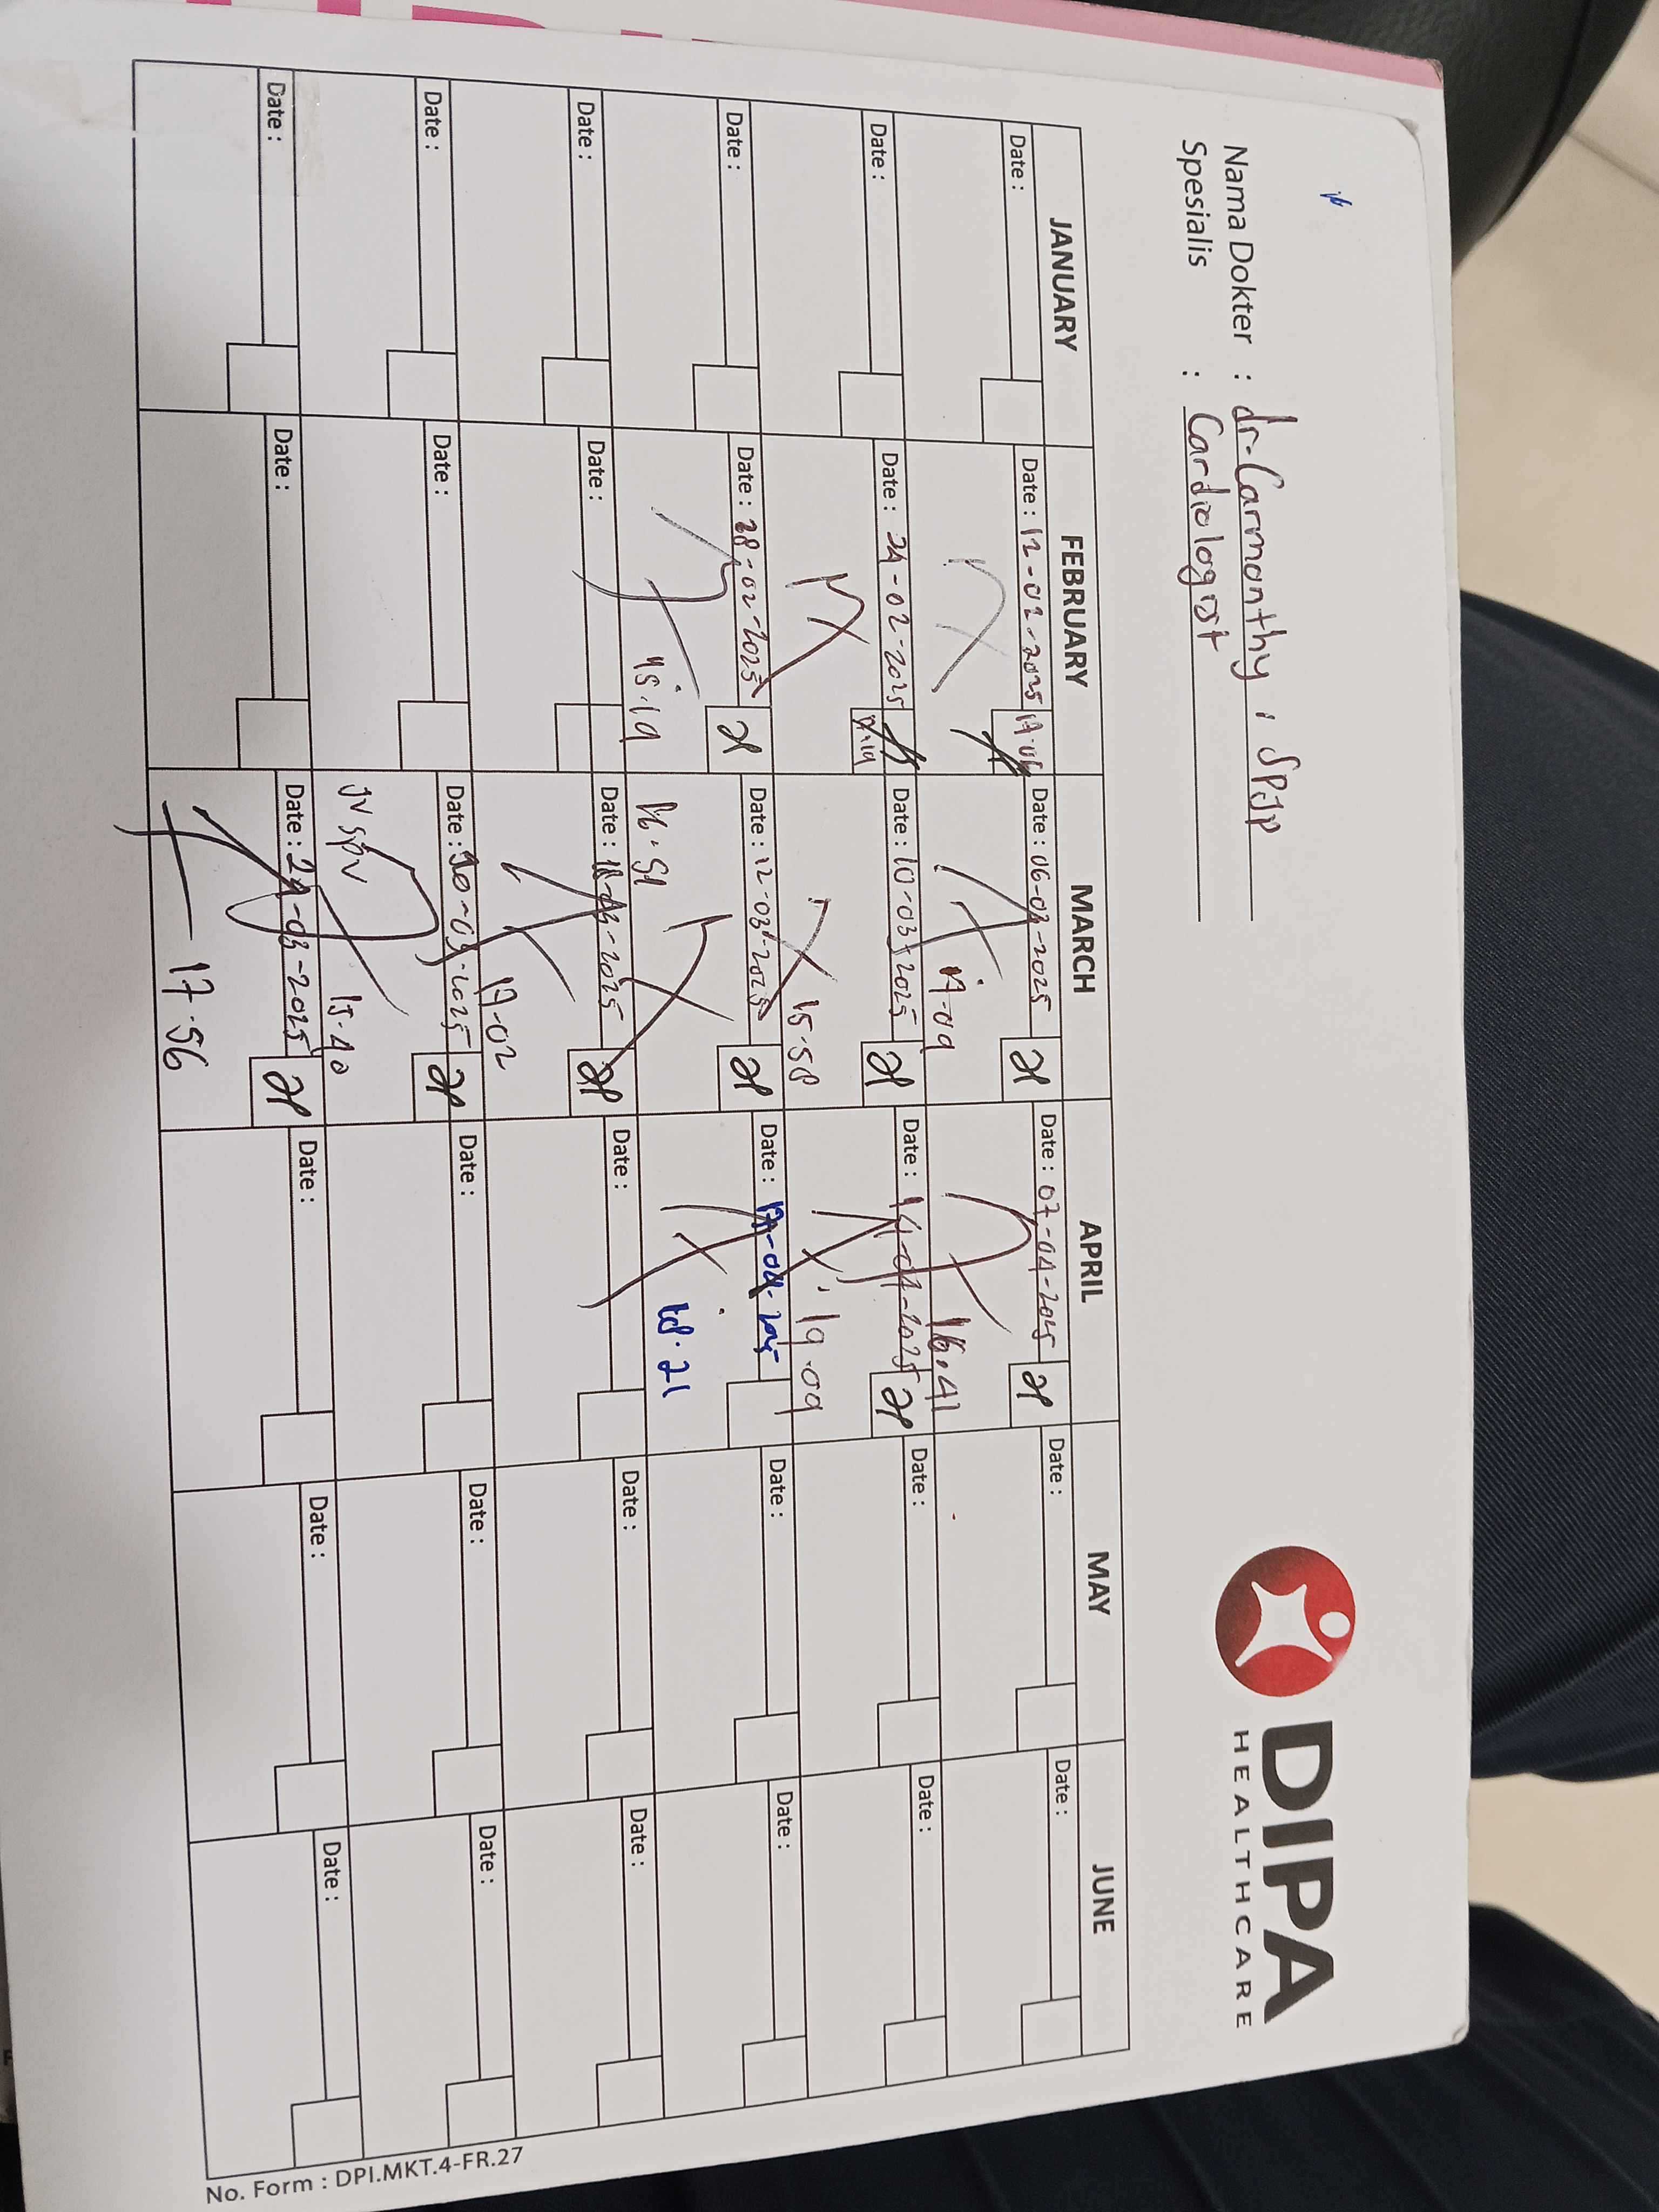 DIPA
HEALTHCARE
Nama Dokter : dr. Carmonthy, SPJP
Spesialis : Cardiologist
JANUARY FEBRUARY MARCH APRIL MAY JUNE
Date : Date : 12-02-2025 Date : 06-03-2025 Date : 07-04-2025 Date : Date :
19.09 16.41
Date : Date : 24-02-2025 Date : 10-03-2025 Date : 14-04-2025 Date : Date :
15.58 19.09
Date : Date : 28-02-2025 Date : 12-03-2025 Date : Date : Date :
16.51 18.21
Date : Date : Date : 18-03-2025 Date : Date : Date :
19.02
Date : Date : Date : Date : Date : Date :
JV SPV 15.40
Date : Date : Date : 24-03-2025 Date : Date : Date :
17.56
No. Form : DPI.MKT.4-FR.27